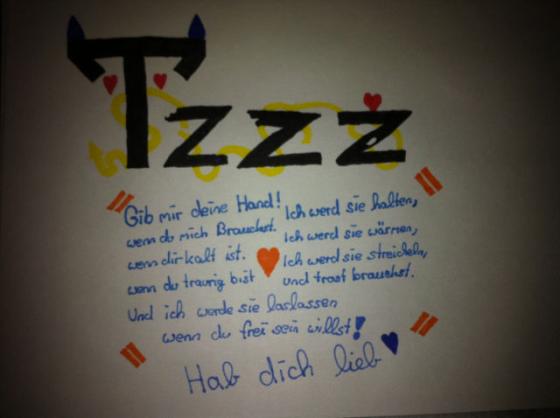 Tzzz
"Gib mir deine Hand! Ich werd sie halten,"
wenn du mich Brauchst. Ich werd sie wärmen,
wenn dir kalt ist. Ich werd sie streicheln,
wenn du traurig bist und trost brauchst.
Und ich werde sie loslassen
wenn du frei sein willst!
Hab dich lieb